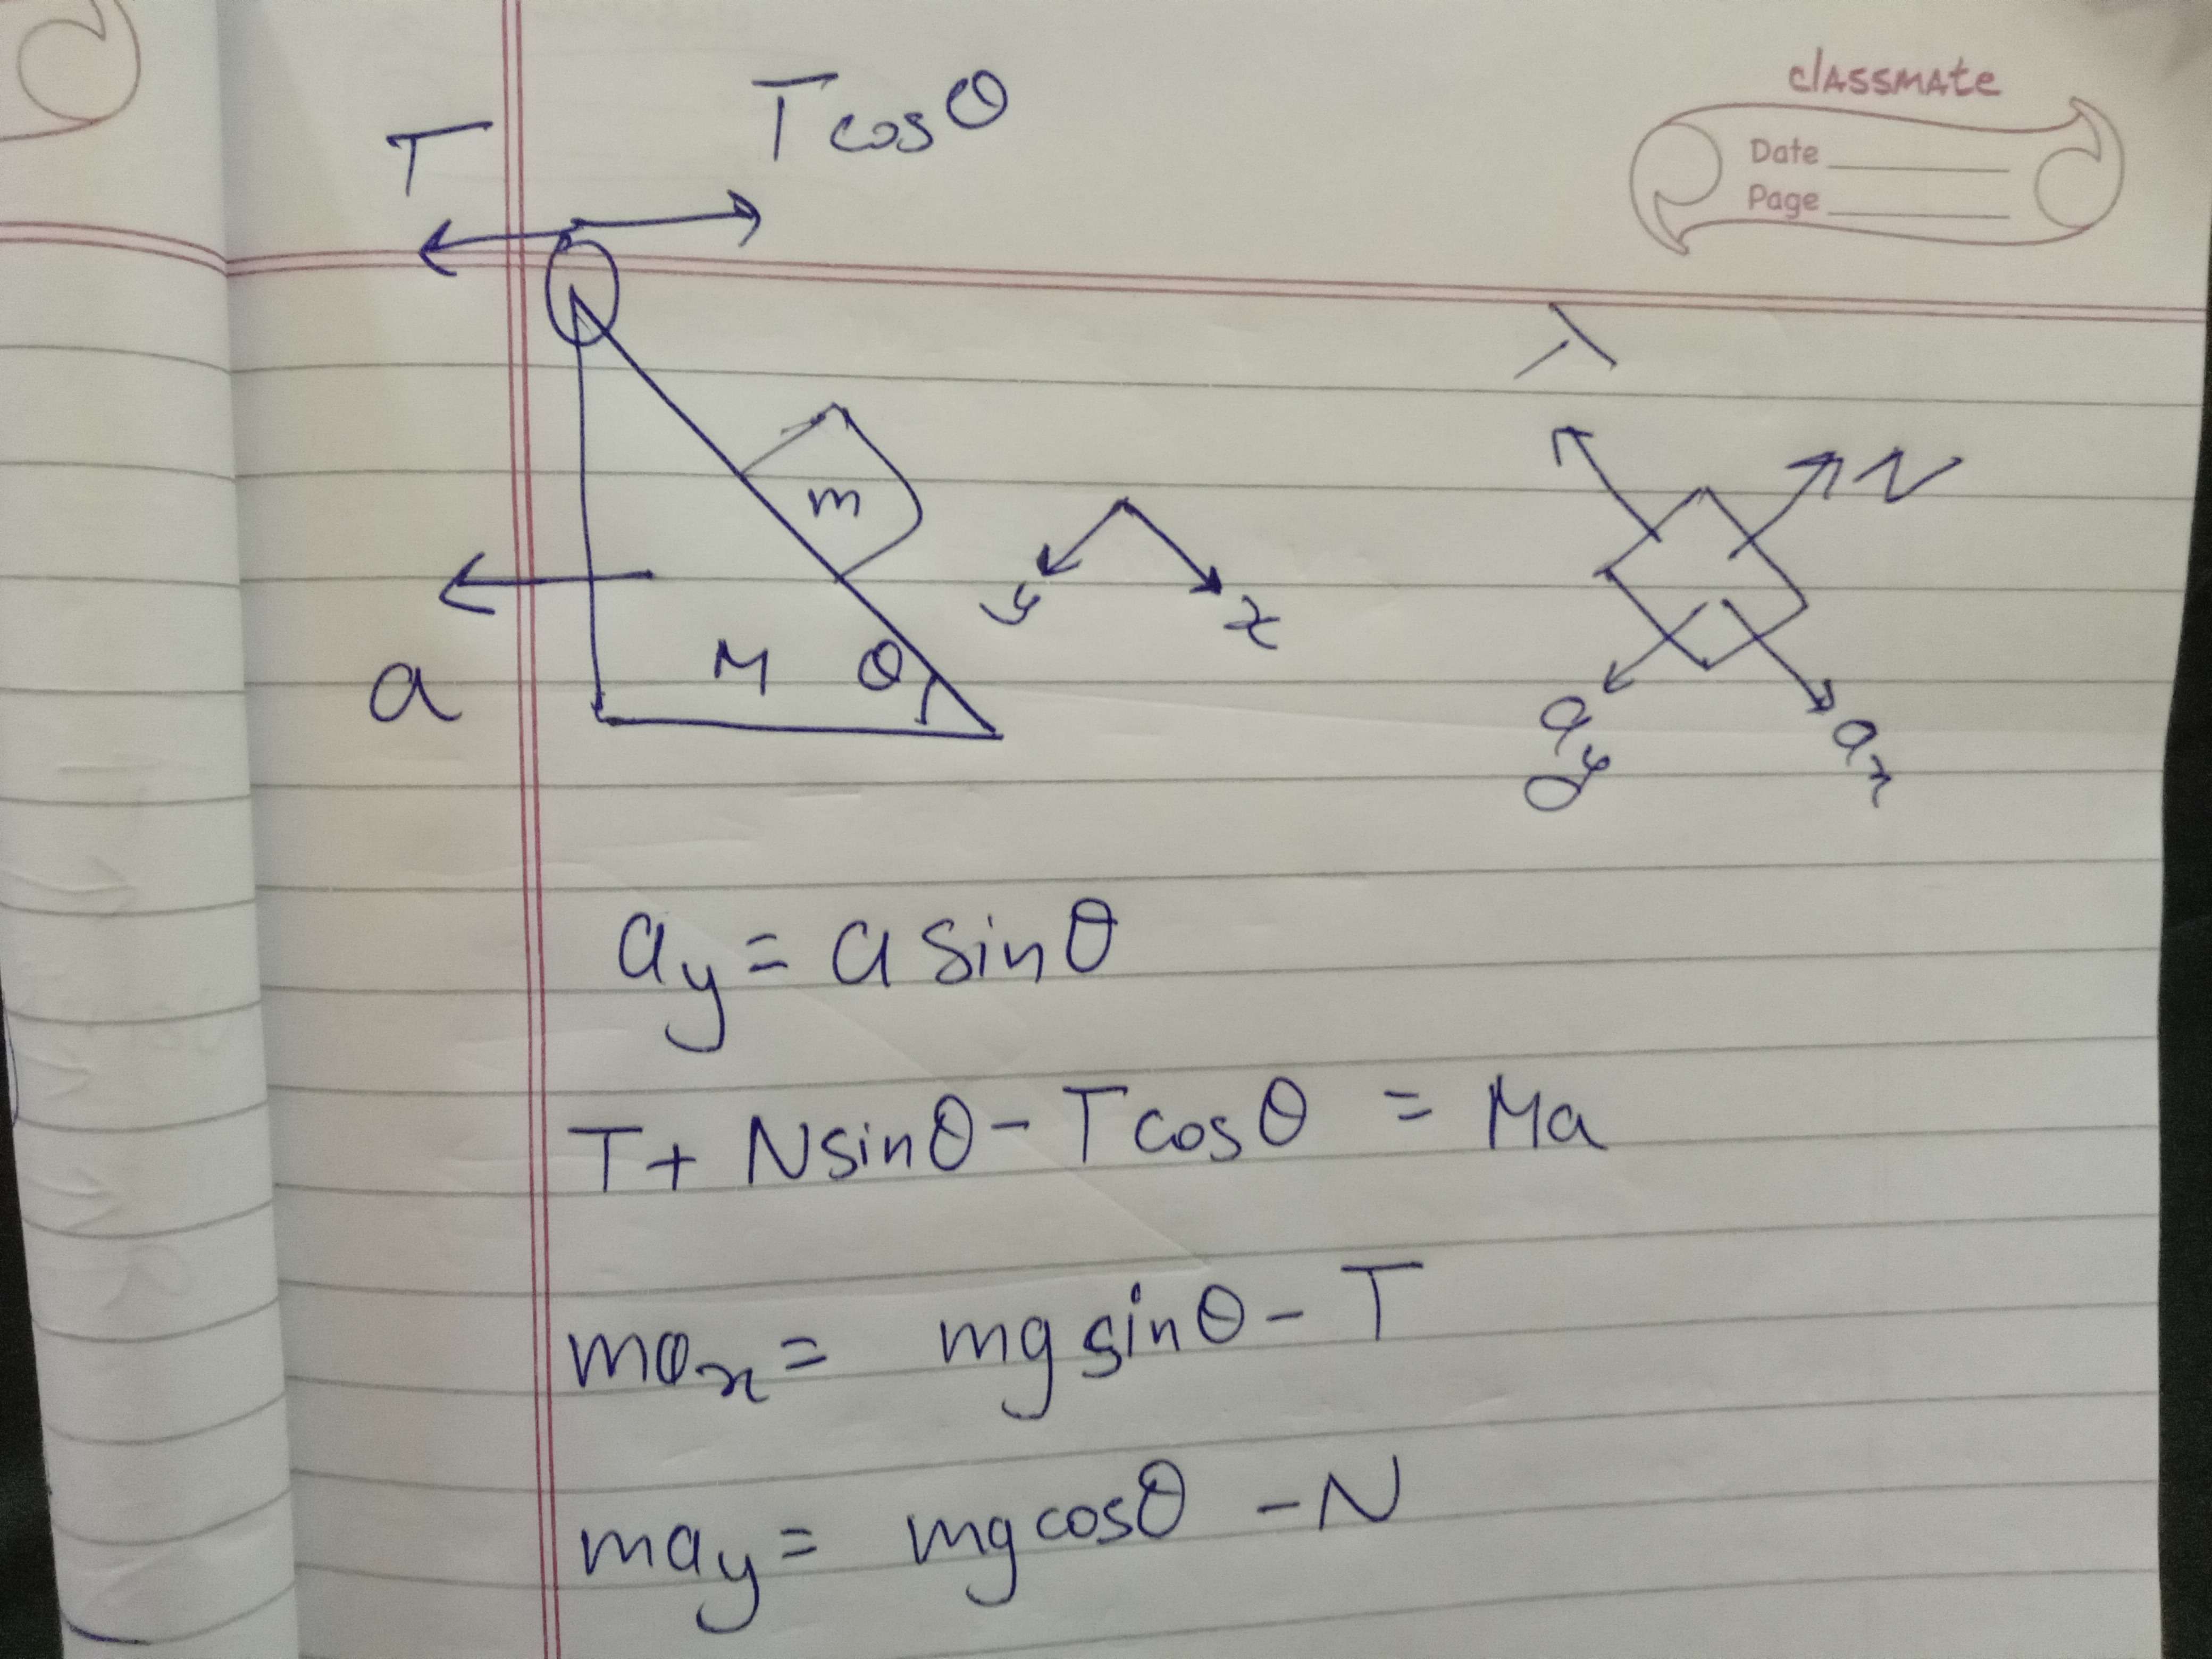 classmate
Date
Page
T
T cosθ
T
m
N
y
x
M
θ
a
a_y
a_x
a_y = a sinθ
T + N sinθ - T cosθ = Ma
ma_x = mg sinθ - T
ma_y = mg cosθ - N